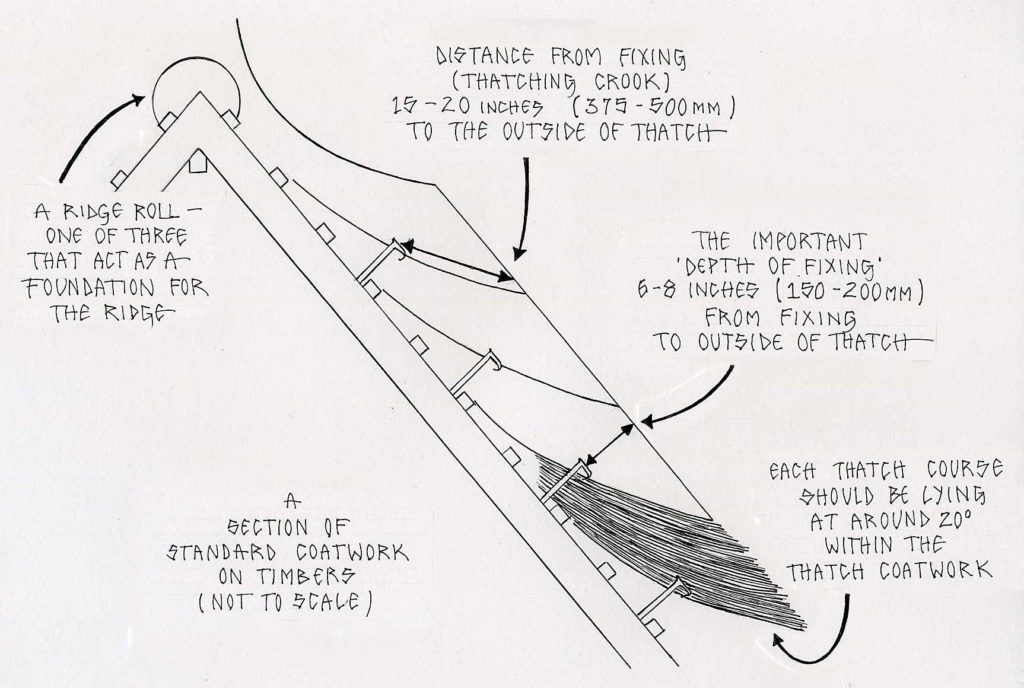 DISTANCE FROM FIXING
(THATCHING CROOK)
15-20 INCHES (375-500MM)
TO THE OUTSIDE OF THATCH
A RIDGE ROLL -
ONE OF THREE
THAT ACT AS A
FOUNDATION FOR
THE RIDGE
THE IMPORTANT
'DEPTH OF FIXING'
6-8 INCHES (150-200MM)
FROM FIXING
TO OUTSIDE OF THATCH
EACH THATCH COURSE
SHOULD BE LYING
AT AROUND 20°
WITHIN THE
THATCH COATWORK
A
SECTION OF
STANDARD COATWORK
ON TIMBERS
(NOT TO SCALE)